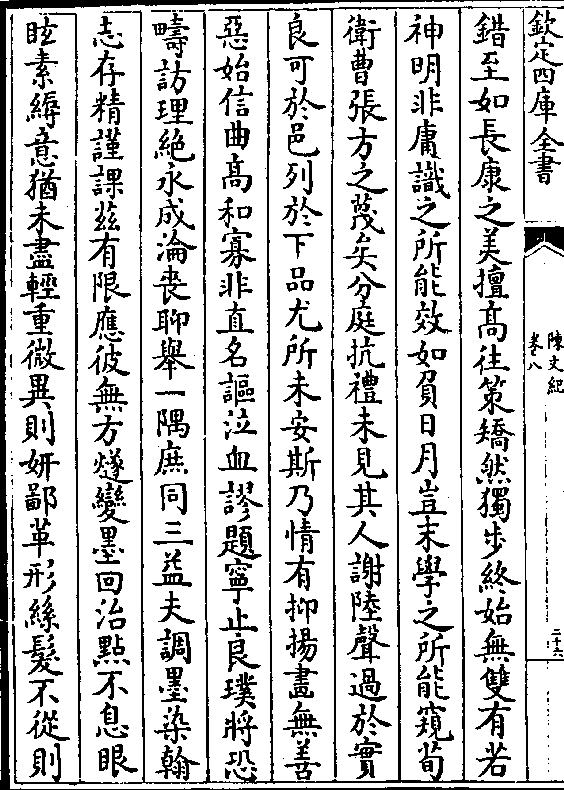 欽定四庫全書
陳文紀
卷八
三十六
錯至如長康之美擅髙往策矯然獨步終始無雙有若
神明非庸識之所能效如負日月豈末學之所能窺荀
衛曹張方之蔑矣分庭抗禮未見其人謝陸聲過於實
良可於邑列於下品尤所未安斯乃情有抑揚畫無善
惡始信曲髙和寡非直名謳泣血謬題寧止良璞將恐
疇訪理絶永成淪喪聊舉一隅庶同三益夫調墨染翰
志存精謹課兹有限應彼無方燧變墨回治點不息眼
眩素縟意猶未盡輕重微異則妍鄙革形絲髮不從則